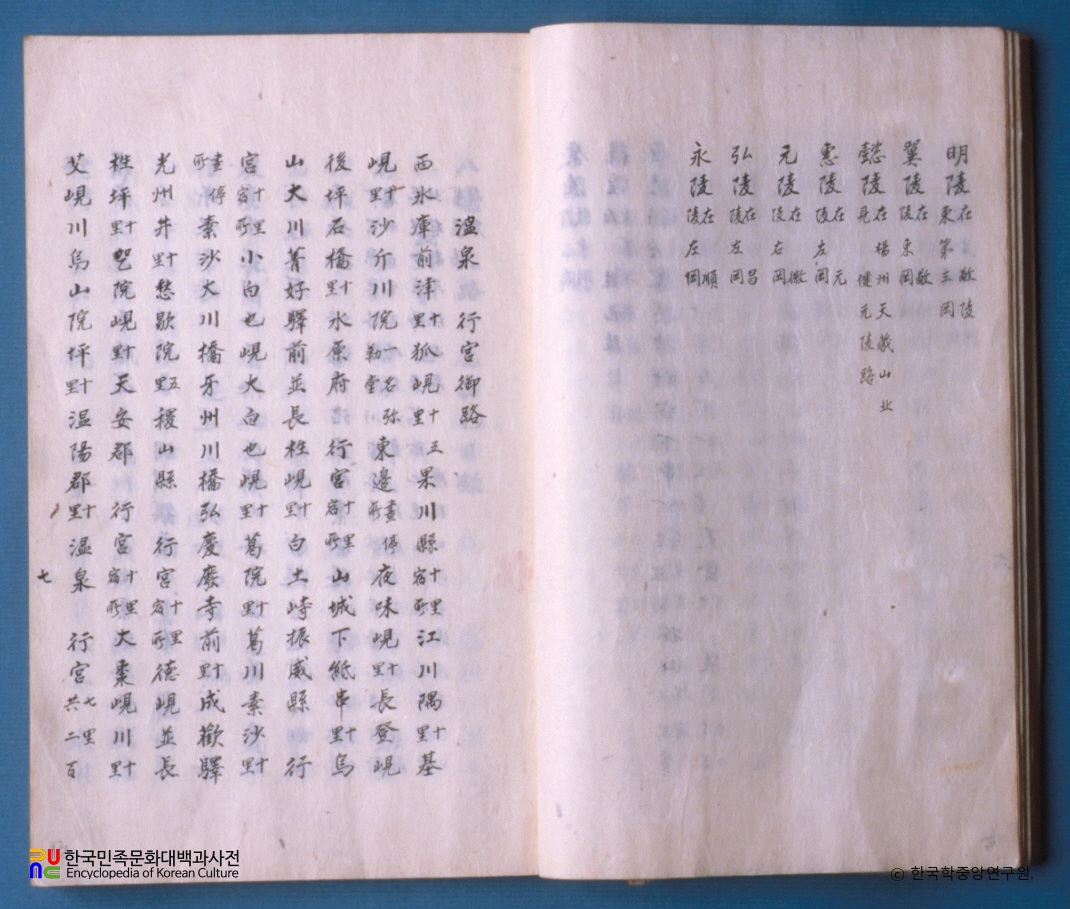 明陵在敬陵東第三岡
翼陵在敬陵東岡
懿陵在楊州天蔵山北健元陵路
惠陵在元陵左岡
元陵在徽陵右岡
弘陵在昌陵左岡
永陵在順陵左岡
温泉行宮御路
西氷庫前津十里狐峴十三里果川縣十里宿所江川隅十里基
峴十里沙斤川院一名弥勒堂東邊晝停所夜味峴十里長登峴
後坪石橋十里水原府行宮十里宿所山城下紙串十里烏
山大川菁好驛前並長柱峴十里白土崎振威縣行
宮十里宿所小白也峴大白也峴十里葛院十里葛川素沙十里
晝停所素沙大川橋牙州川橋弘慶廢寺前十里成歡驛
光州井十里愁歇院五里稷山縣行宮十里宿所德峴並長
柱坪十里院峴十里天安郡行宮十里宿所大棗峴川十里
艾峴川烏山院坪十里温陽郡十里温泉行宮共二百七里
七
한국민족문화대백과사전
Encyclopedia of Korean Culture
© 한국학중앙연구원